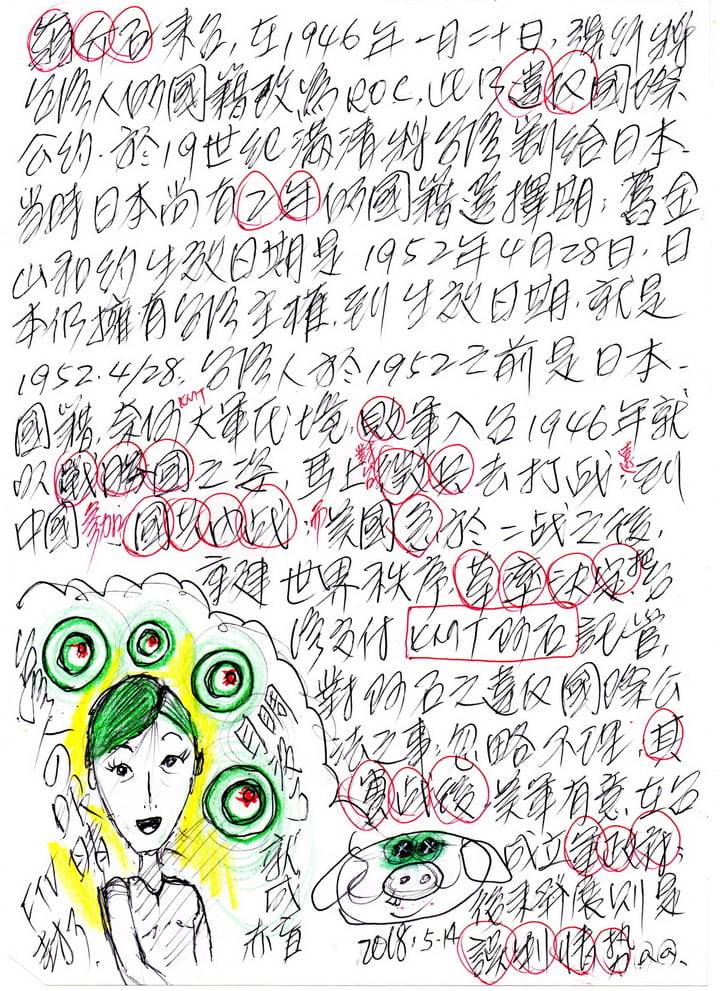 蔣介石來台,在1946年一月二十日,強的將
台灣人的國籍改為ROC,此乃違反國際
公約.於19世紀滿清將台灣割給日本.
當時日本尚有2年的國籍選擇期;舊金
山和約生效日期是1952年4月28日.日
本仍擁有台灣主權.到生效日期.就是
1952.4/28.台灣人於1952之前是日本.
國籍.奈何KMT大軍代境,敗軍入台1946年就
以戰勝國之姿,馬上對台徵兵去打战;遠到
中國參加國共內战.而美國急於二战之後,
重建世界秩序草率決定把台
灣交付KMT介石託管,
對介石之違反國際公
法之事,忽略不理.其
實战後.美軍有意.在台
成立軍政府;
後來發展則是
誤判情势.QQ.
2018.5.14
台灣人の
目睭
就成
赤盲